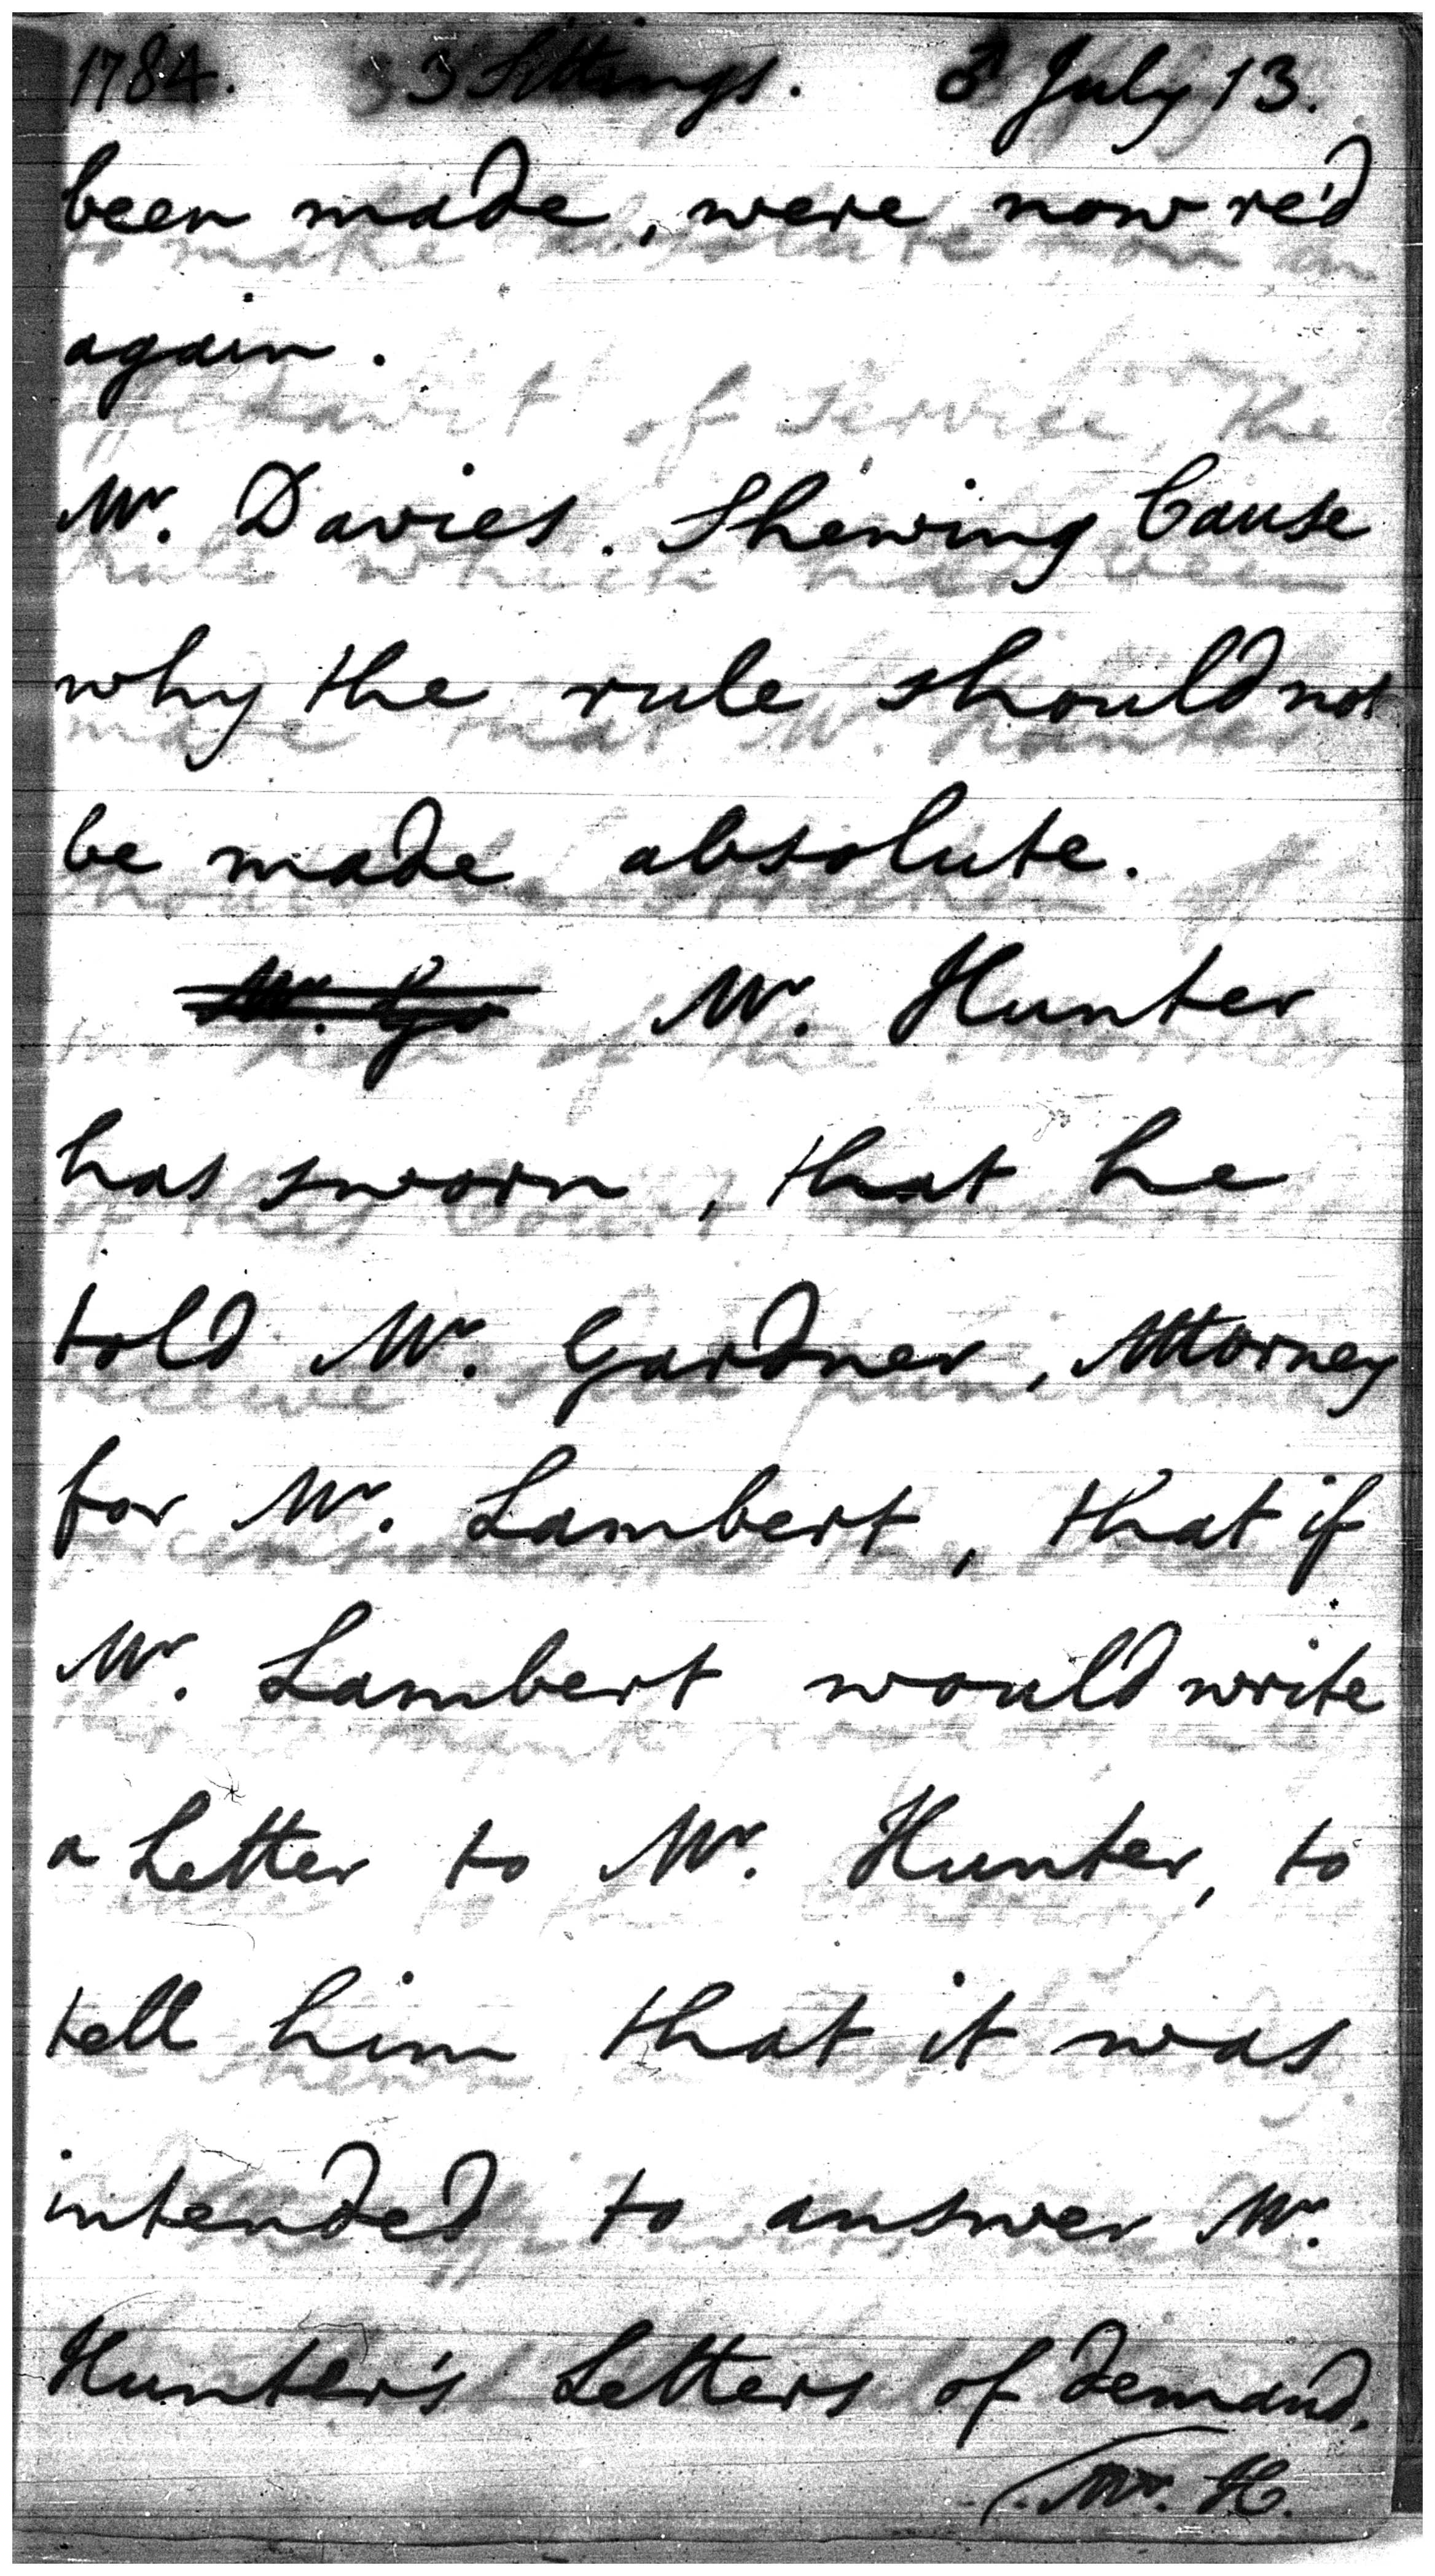 1784. 3 Sittings. ♂ July 13.
been made, were now re'd
again.
Mr. Davies. Shewing Cause
why the rule should not
be made absolute.
Mr. Hunter
has sworn, that he
told Mr. Gardner, Attorney
for Mr. Lambert, that if
Mr. Lambert would write
a Letter to Mr. Hunter, to
tell him that it was
intended to answer Mr.
Hunter's Letters of demand,
Mr. H.